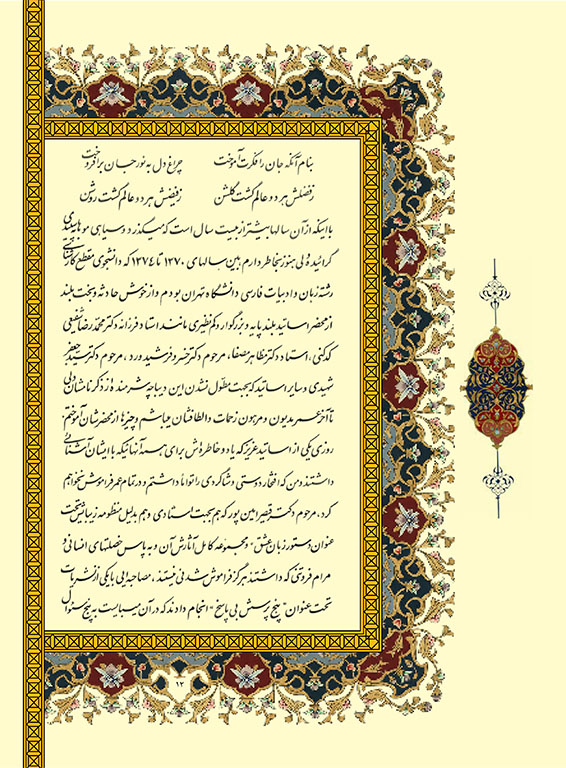 بنام آنکه جان را فکرت آموخت چراغ دل به نور جان برافروخت
ز فضلش هر دو عالم گشت گلشن ز فیضش هر دو عالم گشت روشن
با اینکه از آن سالها بیشتر از بیست سال است که میگذرد و سیاهی موها به سپیدی
گرائیده ولی هنوز بخاطر دارم بین سالهای ۱۳۷۰ تا ۱۳۷٤ که دانشجوی مقطع کارشناسی
رشته زبان و ادبیات فارسی دانشگاه تهران بودم و از خوش حادثه و بخت بلند
از محضر اساتید بلند پایه و بزرگوار و کم نظیری مانند استاد فرزانه دکتر محمدرضا شفیعی
کدکنی، استاد دکتر مظاهر مصفا، مرحوم دکتر خسرو فرشیدورد، مرحوم دکتر سید جعفر
شهیدی و سایر اساتید که بجهت مطول نشدن این دیباچه شرمنده از ذکر نامشان ولی
تا آخر عمر مدیون و مرهون زحمات و الطافشان میباشم و چیزها از محضرشان آموختم.
روزی یکی از اساتید عزیز که یاد و خاطره‌اش برای همه آنهائیکه با ایشان آشنائی
داشتند و من که افتخار دوستی و شاگردی را تواماً داشتم و در تمام عمر فراموش نخواهم
کرد، مرحوم دکتر قیصر امین پور که هم بجهت استادی و هم بدلیل منظومه زیبایش تحت
عنوان «دستور زبان عشق» و مجموعه کامل آثارش آن و به پاس خصلتهای انسانی و
مرام فروتنی که داشتند هرگز فراموش شدنی نیستند، مصاحبه‌ایی با یکی از نشریات
تحت عنوان "پنج پرسش بی پاسخ" انجام دادند که در آن میبایست به پنج سئوال
۱۳